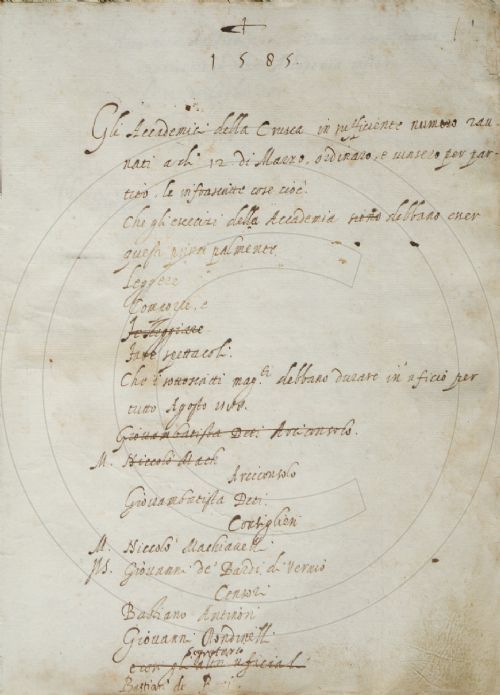 1585.
Gli Accademici della Crusca in sufficiente numero rau-
nati a dì 12 di Marzo, ordinaro, e vinsero per par-
tito, le infrascritte cose cioè.
Che gli esercizi della Accademia sieno debbano esser
questi principalmente
Leggere
Comporre, e
Fare spettacoli.
Che i sottoscritti mag.ti debbano durare in uficio per
tutto Agosto
Giovambatista Deti Arciconsolo.
M. Niccolò Mach
Arciconsolo
Giovambatista Deti.
Consiglieri
M. Niccolò Machiavelli
Giovanni de' Bardi di Vernio
Censori
Bastiano Antinori
Giovanni Rondinelli
Segretario
e con gli altri uficiali
Bastian de